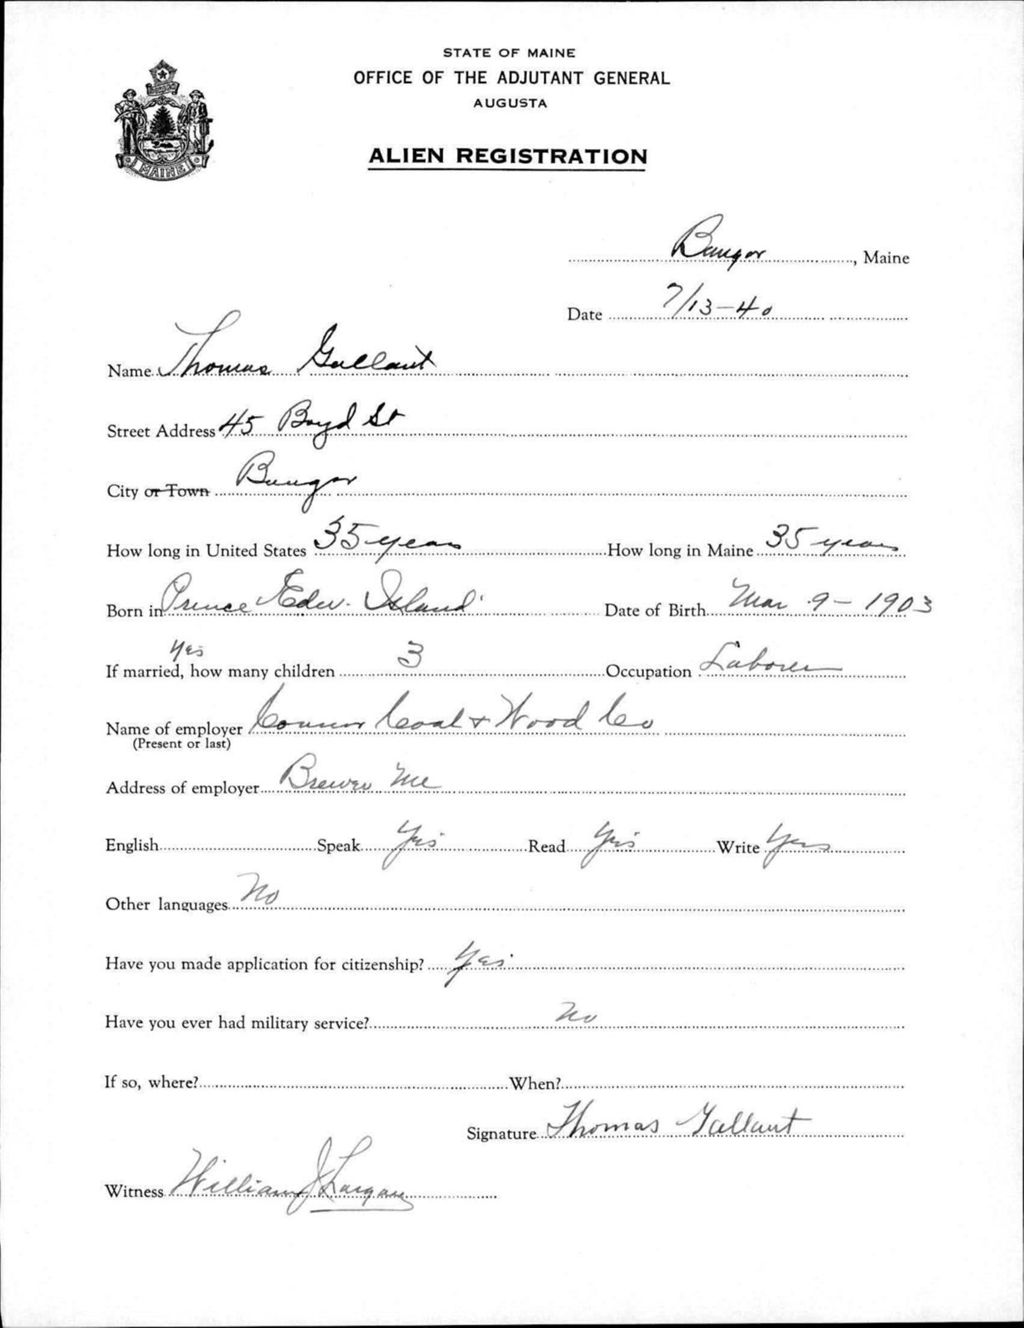 STATE OF MAINE
OFFICE OF THE ADJUTANT GENERAL
AUGUSTA
ALIEN REGISTRATION
MAINE
Bangor, Maine
Date 7/13-40
Name Thomas Gallant
Street Address 45 Boyd St
City or Town Bangor
How long in United States 35 years How long in Maine 35 years
Born in Prince Edw. Island Date of Birth Mar 9 - 1903
Yes
If married, how many children 3 Occupation Laborer
Name of employer Connor Coal + Wood Co
(Present or last)
Address of employer Brewer Me
English Speak Yes Read Yes Write Yes
Other languages No
Have you made application for citizenship? Yes
Have you ever had military service? No
If so, where? When?
Signature Thomas Gallant
Witness William J